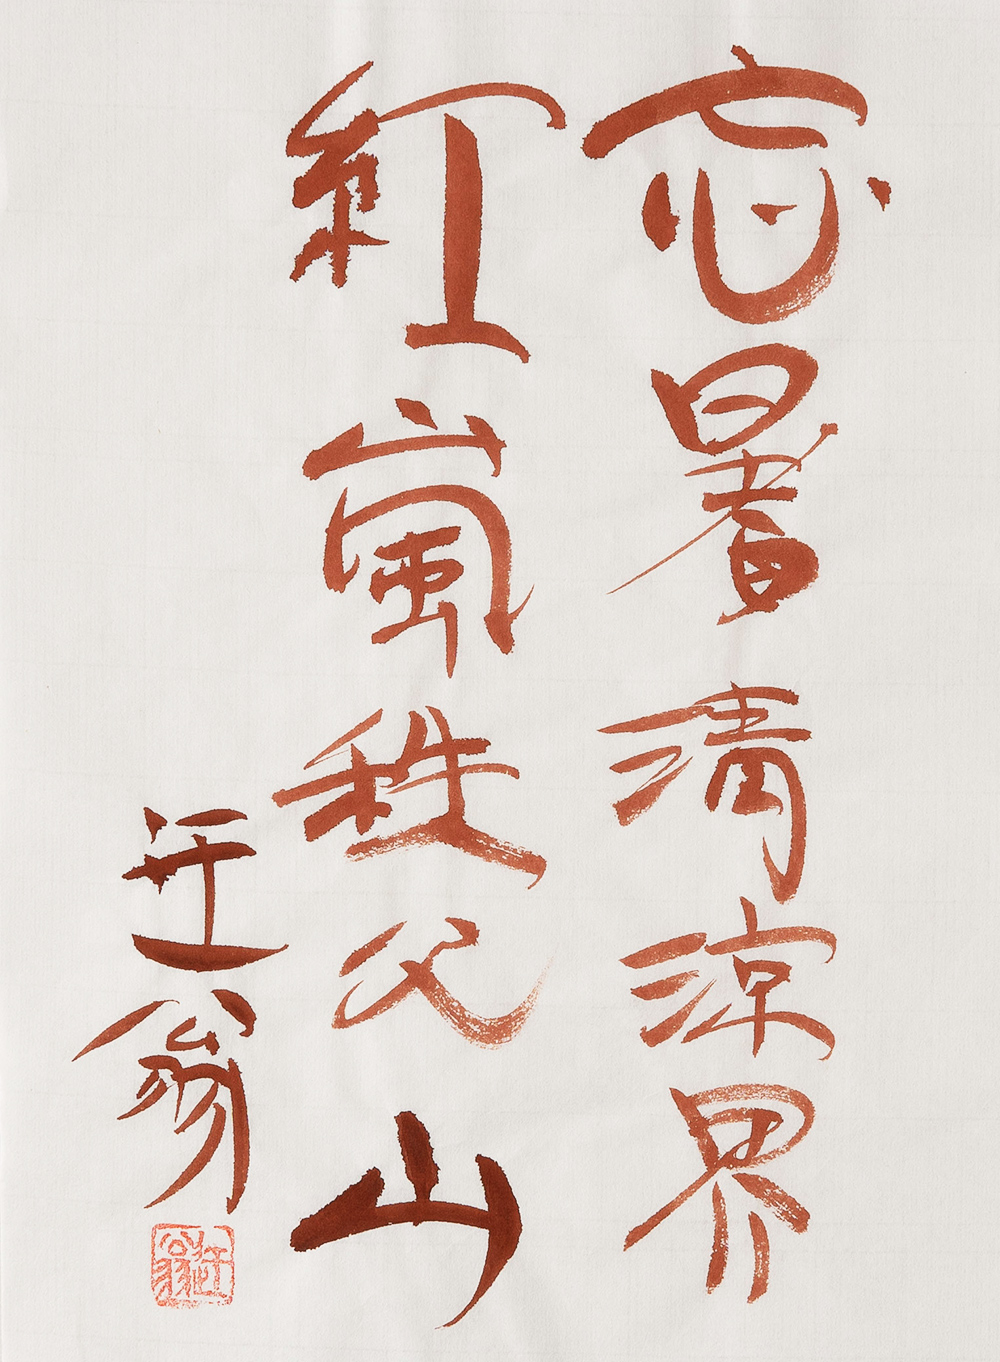 忘暑清涼界
紅嵐秩父山
迂翁
迂翁